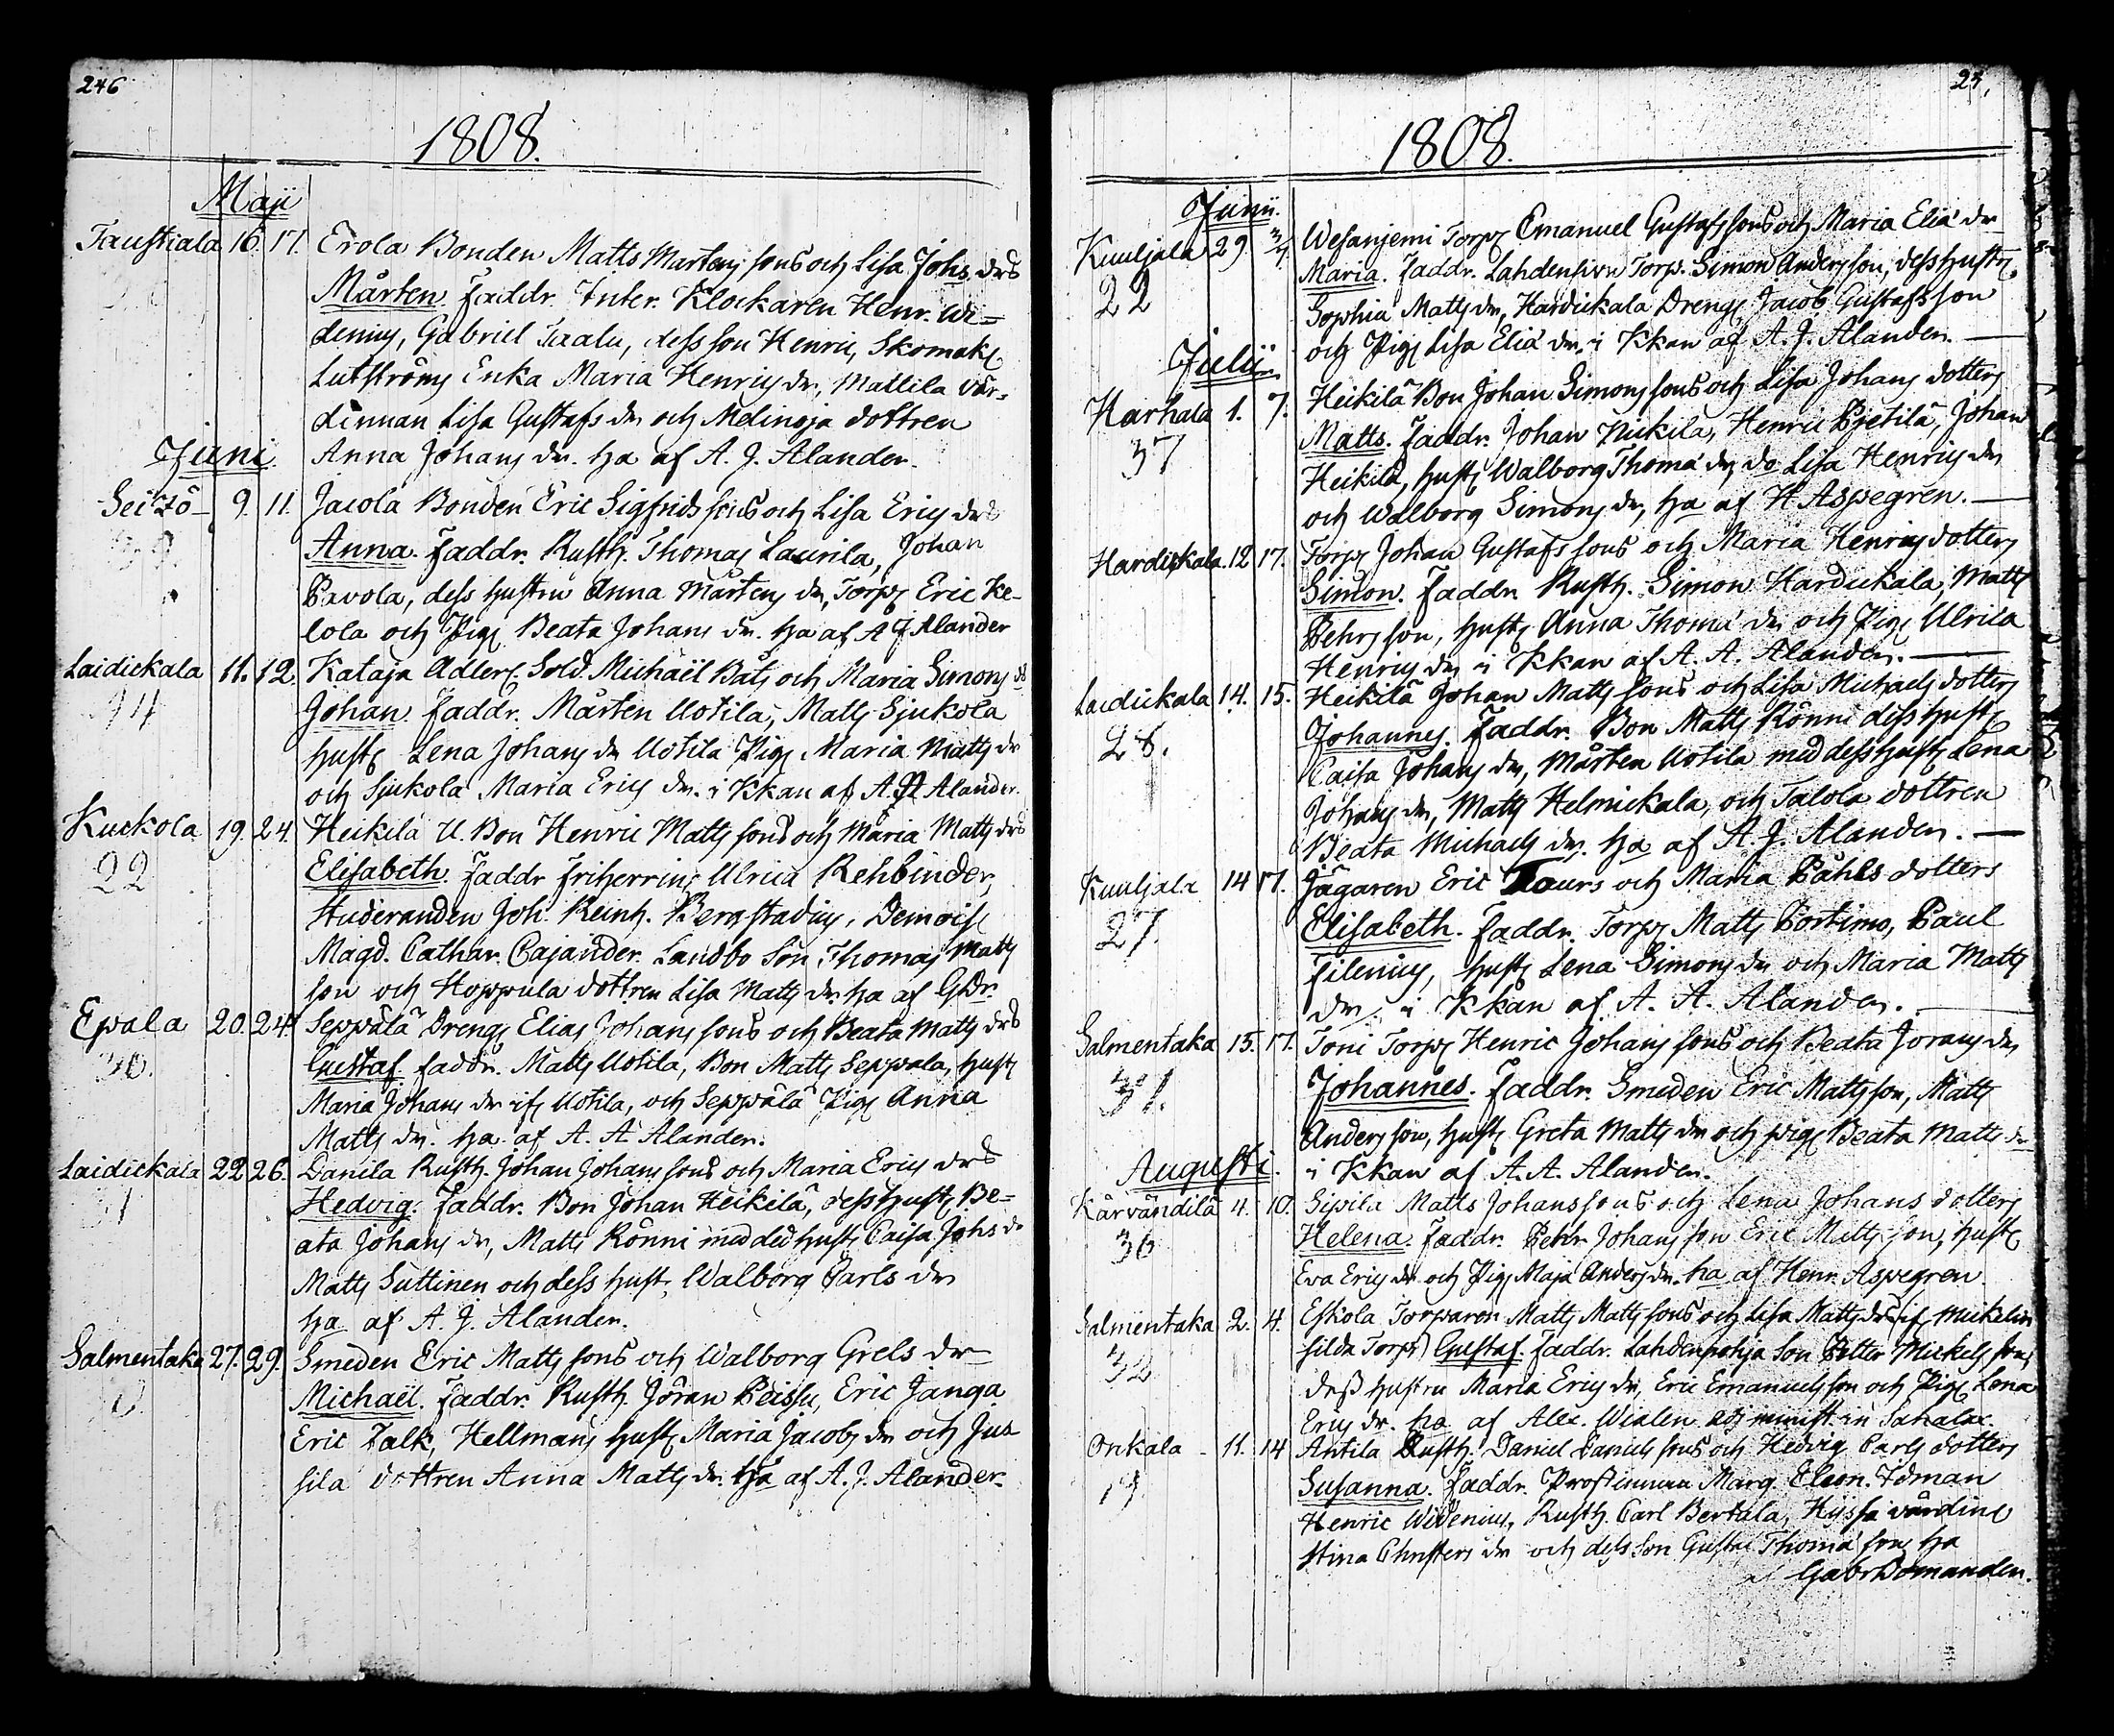 246
1808.
Maji
Taustiala 16. 17. Erola Bonden Matts Mårtens sons och Lisa Johs. drs
Mårten. Faddr. Inter. Klockaren Henr. Wi=
denius, Gabriel Taalu, dess son Henric, Skomak.
Lutströms Enka Maria Henrics dr, Mattila vär=
dinnan Lisa Gustafs dr och Melinoja dottren
Anna Johans dr. ha af A. J. Alander.
Juni
Seitzö 9. 11. Jacola Bonden Eric Sigfrids sons och Lisa Erics drs
Anna. Faddr. Rusth. Thomas Laurila, Johan
Pavola, dess hustru Anna Mårtens dr, Torp. Eric Ke-
lola och Pig. Beata Johans dr. ha af A J Alander
Laidickala 11. 12. Kataja Adlerc. Sold. Michaël Båts och Maria Simons ds
44 Johan. Faddr. Mårten Uotila, Matts Sjukola
hust. Lena Johans dr Uotila Pig. Maria Matts dr
och Sjukola Maria Erics dr. i Kkan af A. A Alander.
Kuckola 19. 24. Heikilä U. Bon Henric Matts sons och Maria Matts drs
22 Elisabeth. Faddr Friherrin. Ulrica Rehbinder,
Studeranden Joh. Reinh. Bergstadius, Demois.
Magd. Cathar. Cajander. Landbo Son Thomas Matts
son och Hoppula dottren Lisa Matts dr. ha af GDr.
Epala 20. 24. Seppälä Dreng. Elias Johans sons och Beata Matts drs
30. Gustaf. Faddr. Matts Uotila, Bon Matts Seppala, hust.
Maria Johans dr if. Uotila, och Seppälä Pig. Anna
Matts dr. ha af A. A Alander.
Laidickala 22 26. Danila Rusth. Johan Johans sons och Maria Erics drs
Hedvig. Faddr. Bon Johan Heikilä, dess Hust. Be=
ata Johans dr, Matts Rönni med dess hust. Caisa Johs dr
Matts Suttinen och dess hust. Walborg Carls dr
ha af A. J. Alander.
Salmentaka 27. 29. Smeden Eric Matts sons och Walborg Grels dr
Michaël. Faddr. Rusth. Jöran Peissu, Eric Janga
Eric Falk, Hellmans hust. Maria Jacobs dr och Jus
sila dottren Anna Matts dr. ha af A. J. Alander.
1808.
Junii.
Kuuljala 29 3/7 Wesanjemi Torp. Emanuel Gustafs sons och Maria Eliæ dr
22 Maria. Faddr. Lahdensivu Torp. Simon Anders son, dess hustr.
Sophia Matts dr, Hardickala Dreng. Jacob Gustafs son
och Pig. Lisa Eliæ dr. i Kkan af A. J. Alander.
Julii
Harhala 1. 7. Heikilä Bon Johan Simons sons och Lisa Johans dotters
37 Matts. Faddr. Johan Nickilä, Henric Pietilä, Johan
Heikilä, hust. Walborg Thomæ dr, do Lisa Henrics dr
och Walborg Simons dr, ha af H Aspegren.
Hardickala. 12 17. Torp. Johan Gustafs sons och Maria Henrics dotters
Simon. Faddr. Rusth. Simon Hardickala, Matts
Pehrs son, hust. Anna Thomæ dr och Pig. Ulrica
Henrics dr i Kkan af A. A. Alander.
Laidickala 14. 15. Heikilä Johan Matts sons och Lisa Michaels dotters
28. Johannes. Faddr. Bon Matts Rönni dess hust.
Caisa Johans dr, Mårten Uotila med dess hust. Lena
Johans dr, Matts Helmickala, och Talola dottren
Beata Michaels dr. ha af A. J. Alander.
Kuuljala 14 17. Jägaren Eric Taurs och Maria Påhls dotters
27. Elisabeth. Faddr. Torp. Matts Portimo, Paul
Filenius, hust. Lena Simons dr och Maria Matts
dr. i Kkan af A. A. Alander.
Salmentaka 15. 17. Toni Torp. Henric Johans sons och Beata Jorans dr
31. Johannes. Faddr. Smeden Eric Matts son, Matts
Anders son, hust. Greta Matts dr och pig. Beata Matts dr
i Kkan af A. A. Alander.
Augusti.
Kärvändilä 4. 10. Sipila Matts Johans sons och Lena Johans dotters
36 Helena. Faddr. Pehr Johans son Eric Matts son, hust.
Eva Erics dr och Pig. Maja Anders dr. ha af Henr. Aspegren
Salmentaka 2. 4. Eskola Torparen Matts Matts sons och Lisa Matts drs if. Mickelin
32 silda Torp.) Gustaf. Faddr. Lahdenpohja Son Petter Mickels son,
dess hustru Maria Erics dr, Eric Emanuels son och Pig. Lena
Erics dr. ha af Alex. Wialen Adj minist. in Sahalax.
Onkala 11. 14 Antila Rusth. Daniel Daniels sons och Hedvig Carls dotters
19. Susanna. Faddr. Prostinnan Marg. Eleon. Idman
Henric Widenius, Rusth. Carl Bertula, Hyssa värdin.
Stina Christers dr och dess Son Gustaf Thomæ son, ha
af Gabr Domander.